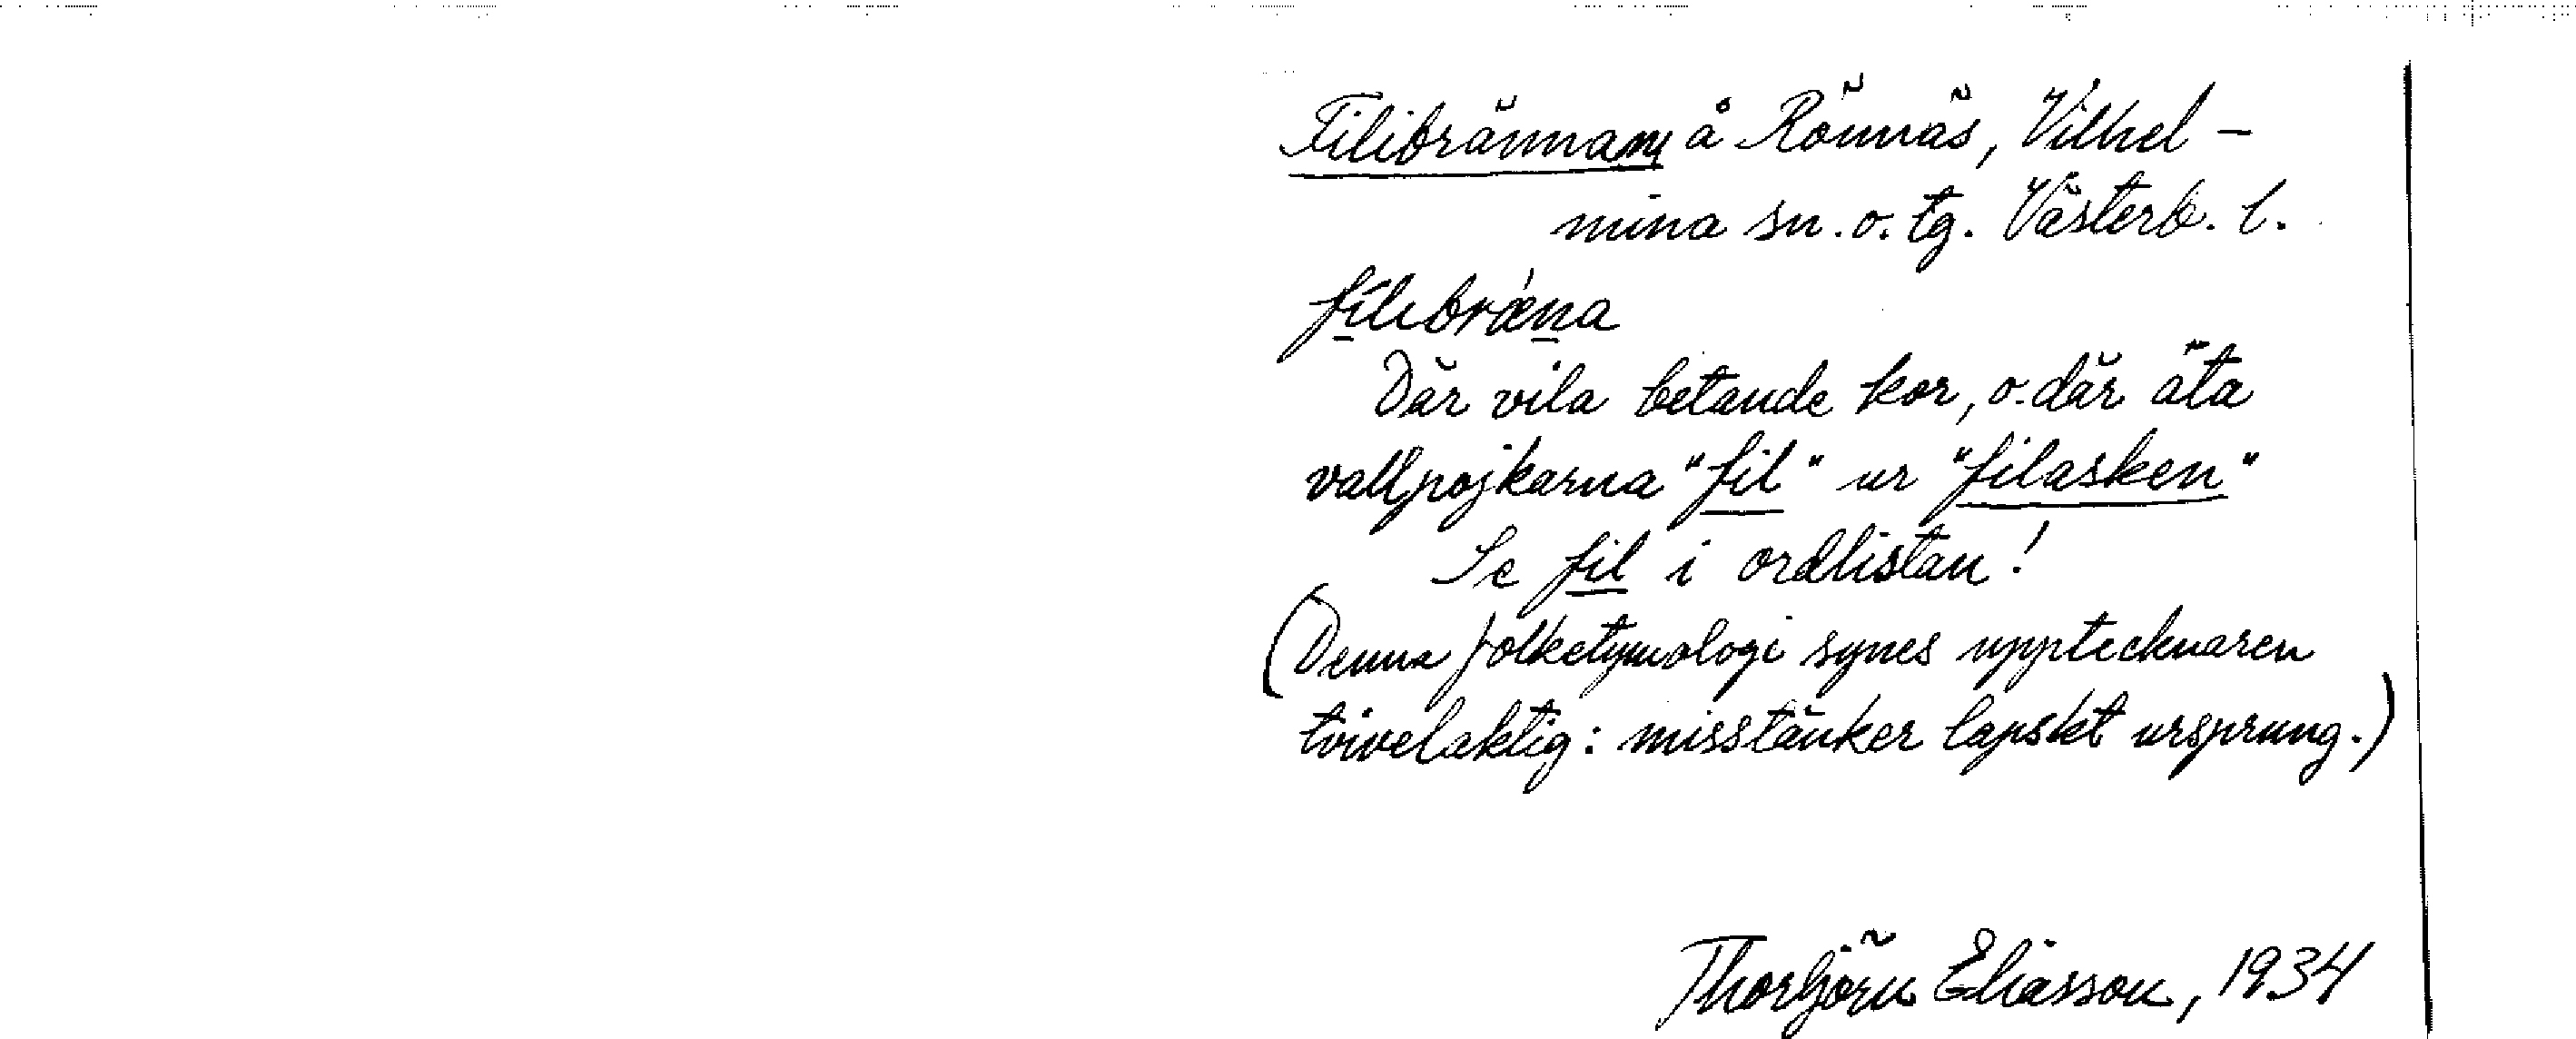 Filibrännan å Rönnäs, Vilhel-
mina sn. o. tg. Västerb. l.
fílibræ̀na
Där vila betande kor, o. där äta
vallpojkarna "fil" ur "filasken"
Se fil i ordlistan!
(Denna folketymologi synes uppteckn­aren
tvivelaktig: misstänker lapskt ursprung.)
Thorbjörn Eliasson, 1934